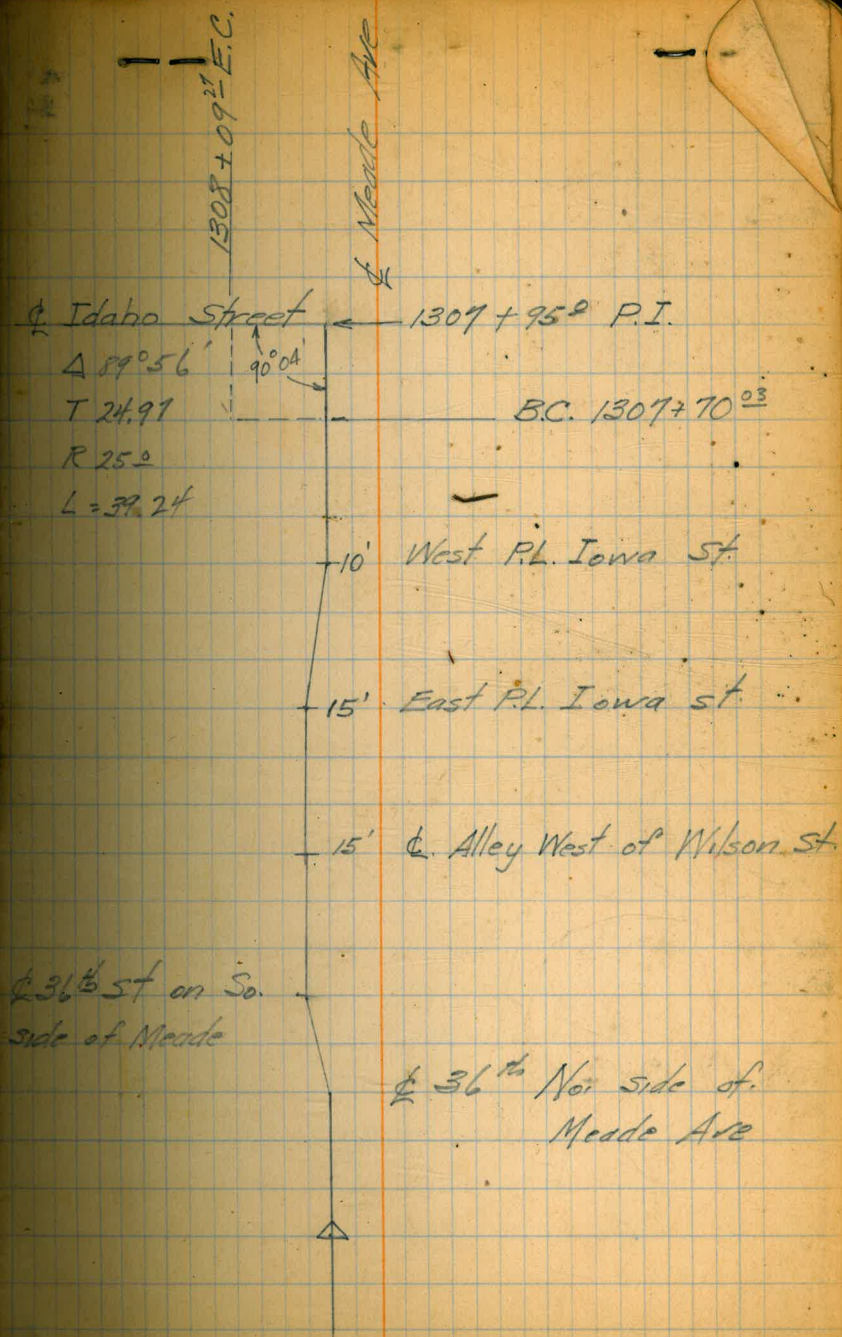 1308 + 09 27 E.C.
℄ Meade Ave
℄ Idaho Street
1307 + 95 0 P.I.
Δ 89°56'
90°04'
T 24.97
B.C. 1307 + 70 03
R 25 0
L = 39.24
10' West P.L. Iowa St.
15' East P.L. Iowa st.
15' ℄ Alley West of Wilson St.
℄ 36th St on So.
side of Meade
℄ 36th No. side of
Meade Ave